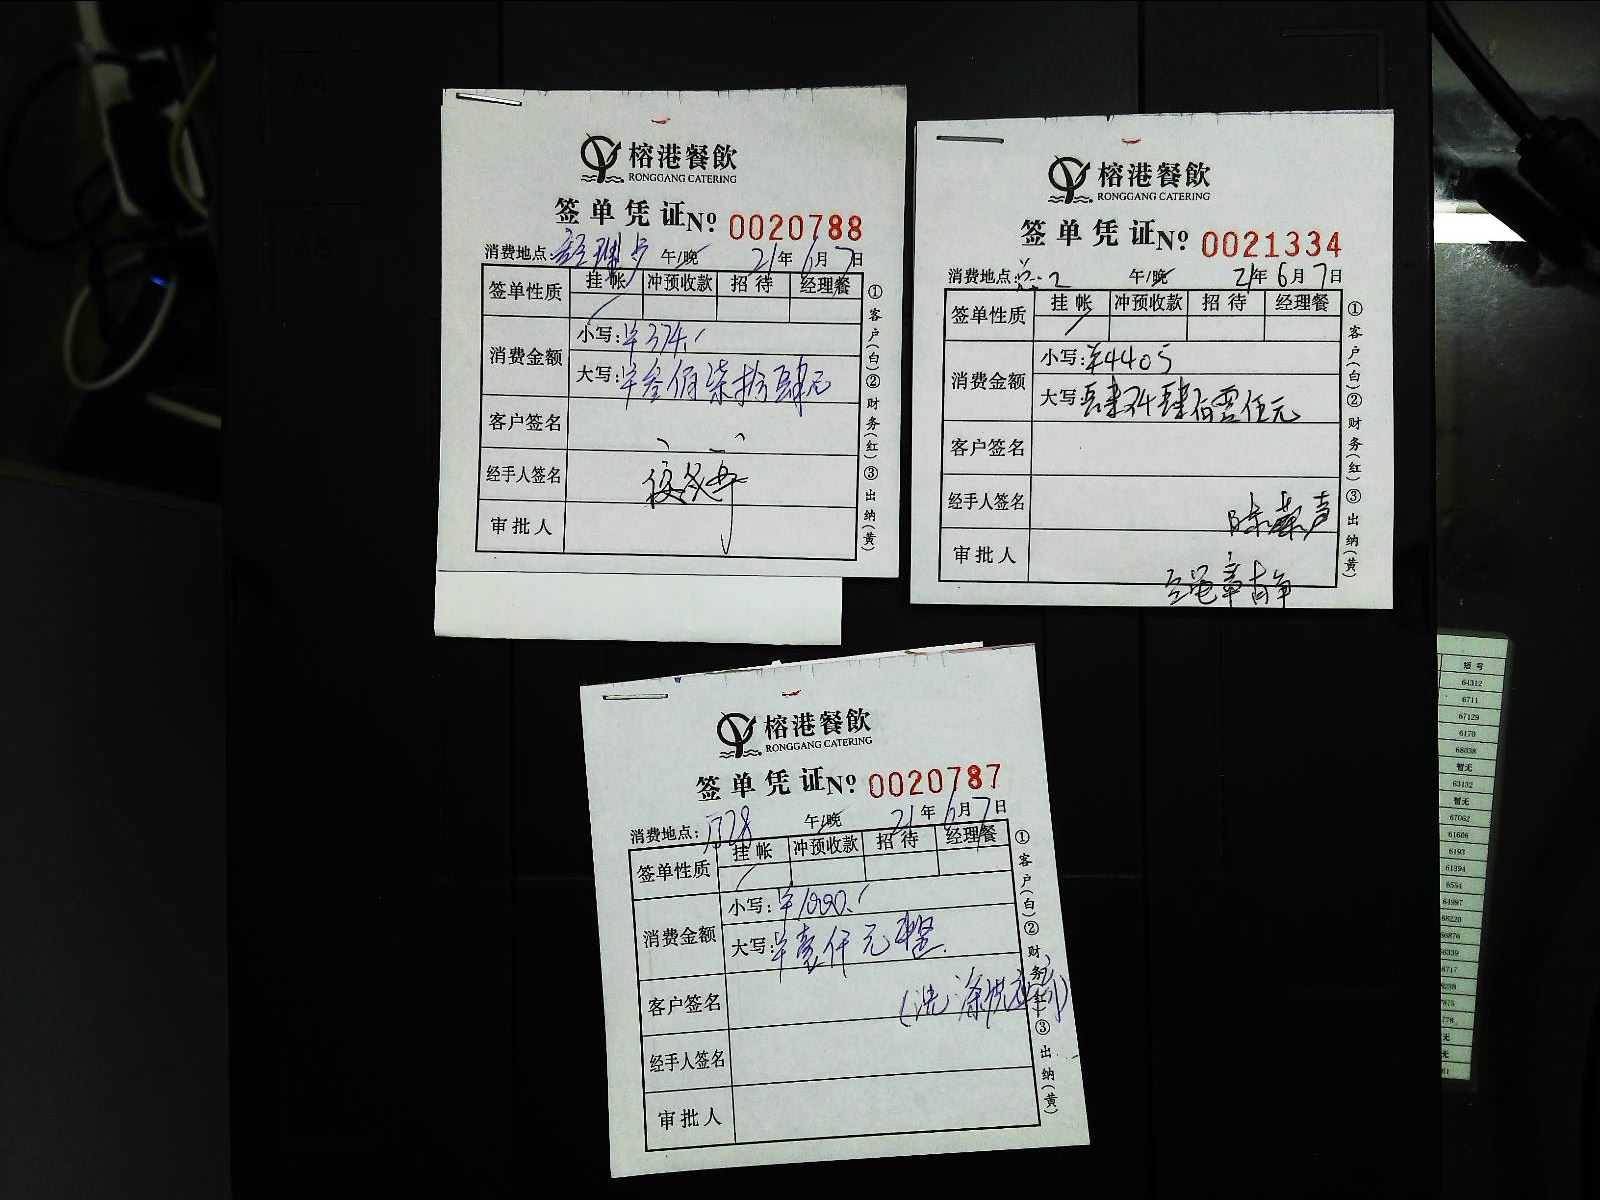 榕港餐飲
RONGGANG CATERING
签单凭证 Nº 0020788
消费地点: 午/晚 21年6月7日
签单性质 挂帐 冲预收款 招待 经理餐
消费金额 小写:¥374.
大写:¥叁佰柒拾肆元
客户签名
经手人签名
审批人
①客户(白)②财务(红)③出纳(黄)
榕港餐飲
RONGGANG CATERING
签单凭证 Nº 0021334
消费地点: 午/晚 21年6月7日
签单性质 挂帐 冲预收款 招待 经理餐
消费金额 小写:¥4405
大写:肆仟肆佰零伍元
客户签名
经手人签名
审批人
①客户(白)②财务(红)③出纳(黄)
榕港餐飲
RONGGANG CATERING
签单凭证 Nº 0020787
消费地点: 午/晚 21年6月7日
签单性质 挂帐 冲预收款 招待 经理餐
消费金额 小写:¥1000.
大写:¥壹仟元整
客户签名
经手人签名
审批人
①客户(白)②财务(红)③出纳(黄)
短号
64312
6711
67129
6170
68038
暂无
63132
暂无
67062
61606
6193
61394
6554
64997